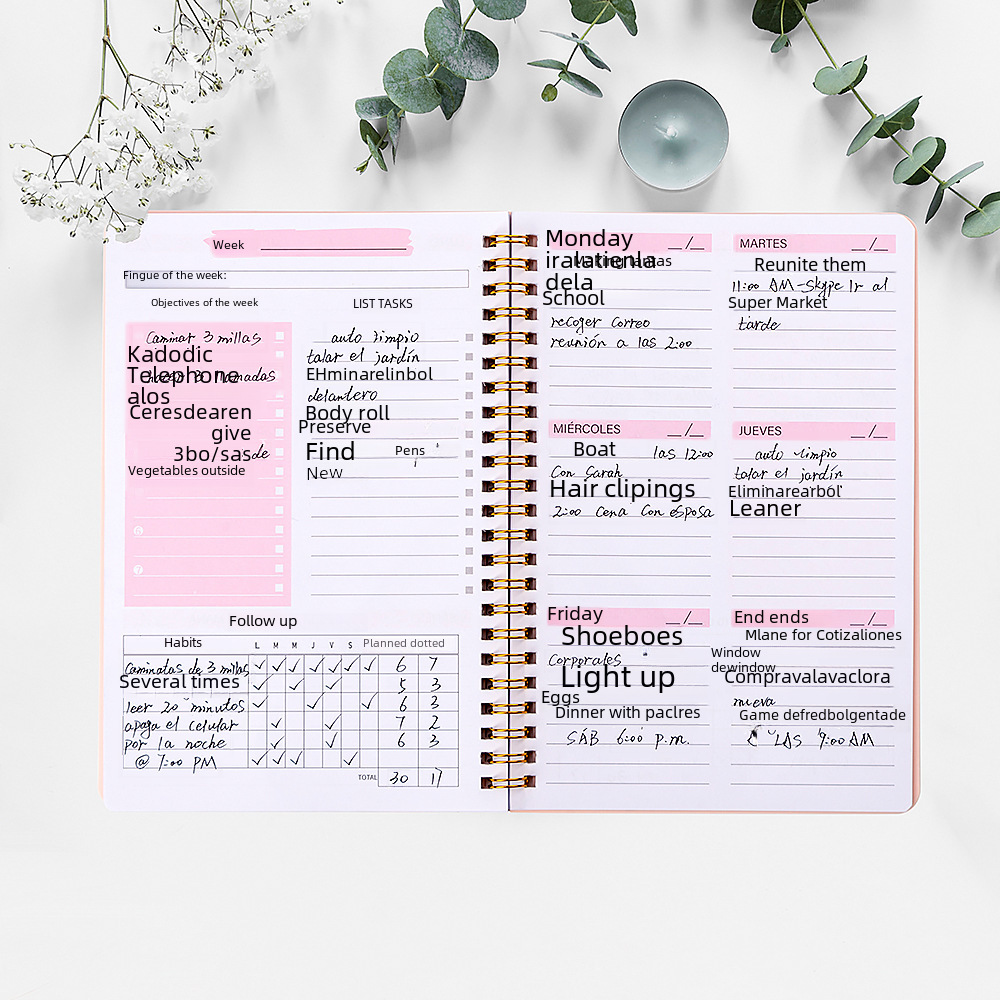 Week
Fingue of the week:
Objectives of the week
LIST TASKS
Caminar 3 millas
Kadodic
Telephone
alos
Ceresdearen
give
3bo/sasde
Vegetables outside
6
7
auto limpio
talar el jardín
EHminarelinbol
delantero
Body roll
Preserve
Find Pens
New
Follow up
Habits L M M J V S Planned dotted
Caminatas de 3 millas 6 7
Several times 5 3
leer 20 minutos 6 3
apaga el celular 7 2
por la noche 6 3
@ 7:00 PM
TOTAL 30 17
Monday
dela
School
recoger correo
reunión a las 2:00
MARTES
Reunite them
11:00 AM-Skype lr al
Super Market
tarde
MIÉRCOLES
Boat las 12:00
Con Sarah
Hair clipings
2:00 Cena Con esposa
JUEVES
auto limpio
talar el jardín
Eliminarearból
Leaner
Friday
Shoeboes
Corporales
Light up
Eggs
Dinner with paclres
SÁB 6:00 p.m.
End ends
Mlane for Cotizaliones
Window
dewindow
Compravalavaclora
nueva
Game defredbolgentade
LAS 9:00 AM